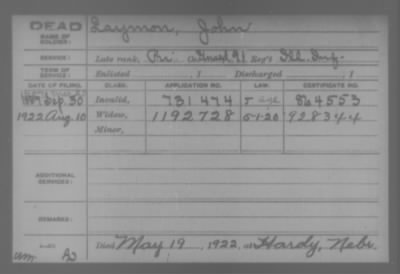 DEAD
NAME OF SOLDIER: Laymon, John
SERVICE: Late rank, Pri Co. Unasd 91 Reg't Ill. Inf.
TERM OF SERVICE: Enlisted , 1 Discharged , 1
DATE OF FILING. CLASS. APPLICATION NO. LAW. CERTIFICATE NO.
1889 Sep. 30 Invalid, 731474 864553
1922 Aug 10 Widow, 1192728 5-1-20 928344
Minor,
ADDITIONAL SERVICES:
REMARKS:
Died May 19, 1922, at Hardy, Nebr.